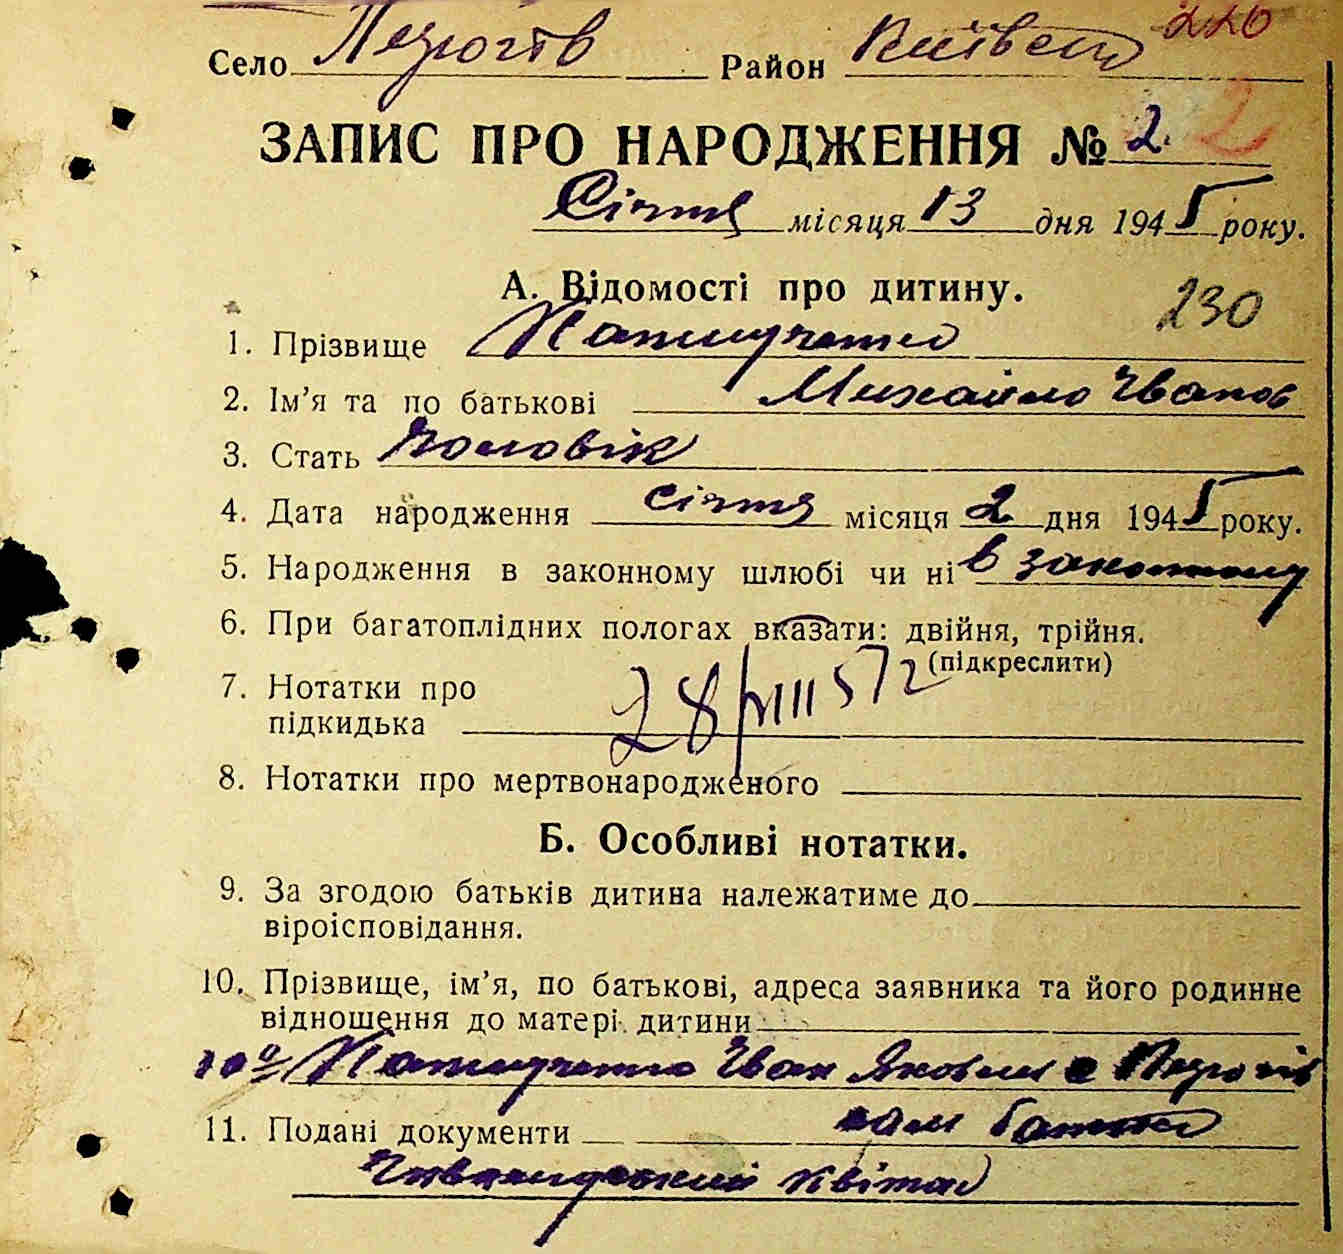 220
Село Пирогів Район Київськ
ЗАПИС ПРО НАРОДЖЕННЯ № 2. 2
Січня місяця 13 дня 1945 року.
А. Відомості про дитину.
230
1. Прізвище
2. Ім’я та по батькові Михайло Іванов
3. Стать Чоловік
4. Дата народження січня місяця 2 дня 1945 року.
5. Народження в законному шлюбі чи ні в законному
6. При багатоплідних пологах вказати: двійня, трійня.
(підкреслити)
7. Нотатки про
підкидька 28/VIII 572
8. Нотатки про мертвонародженого
Б. Особливі нотатки.
9. За згодою батьків дитина належатиме до
віроісповідання.
10. Прізвище, ім’я, по батькові, адреса заявника та його родинне
відношення до матері дитини
Іван Яковл с Пирогів
11. Подані документи сам батько
квіток